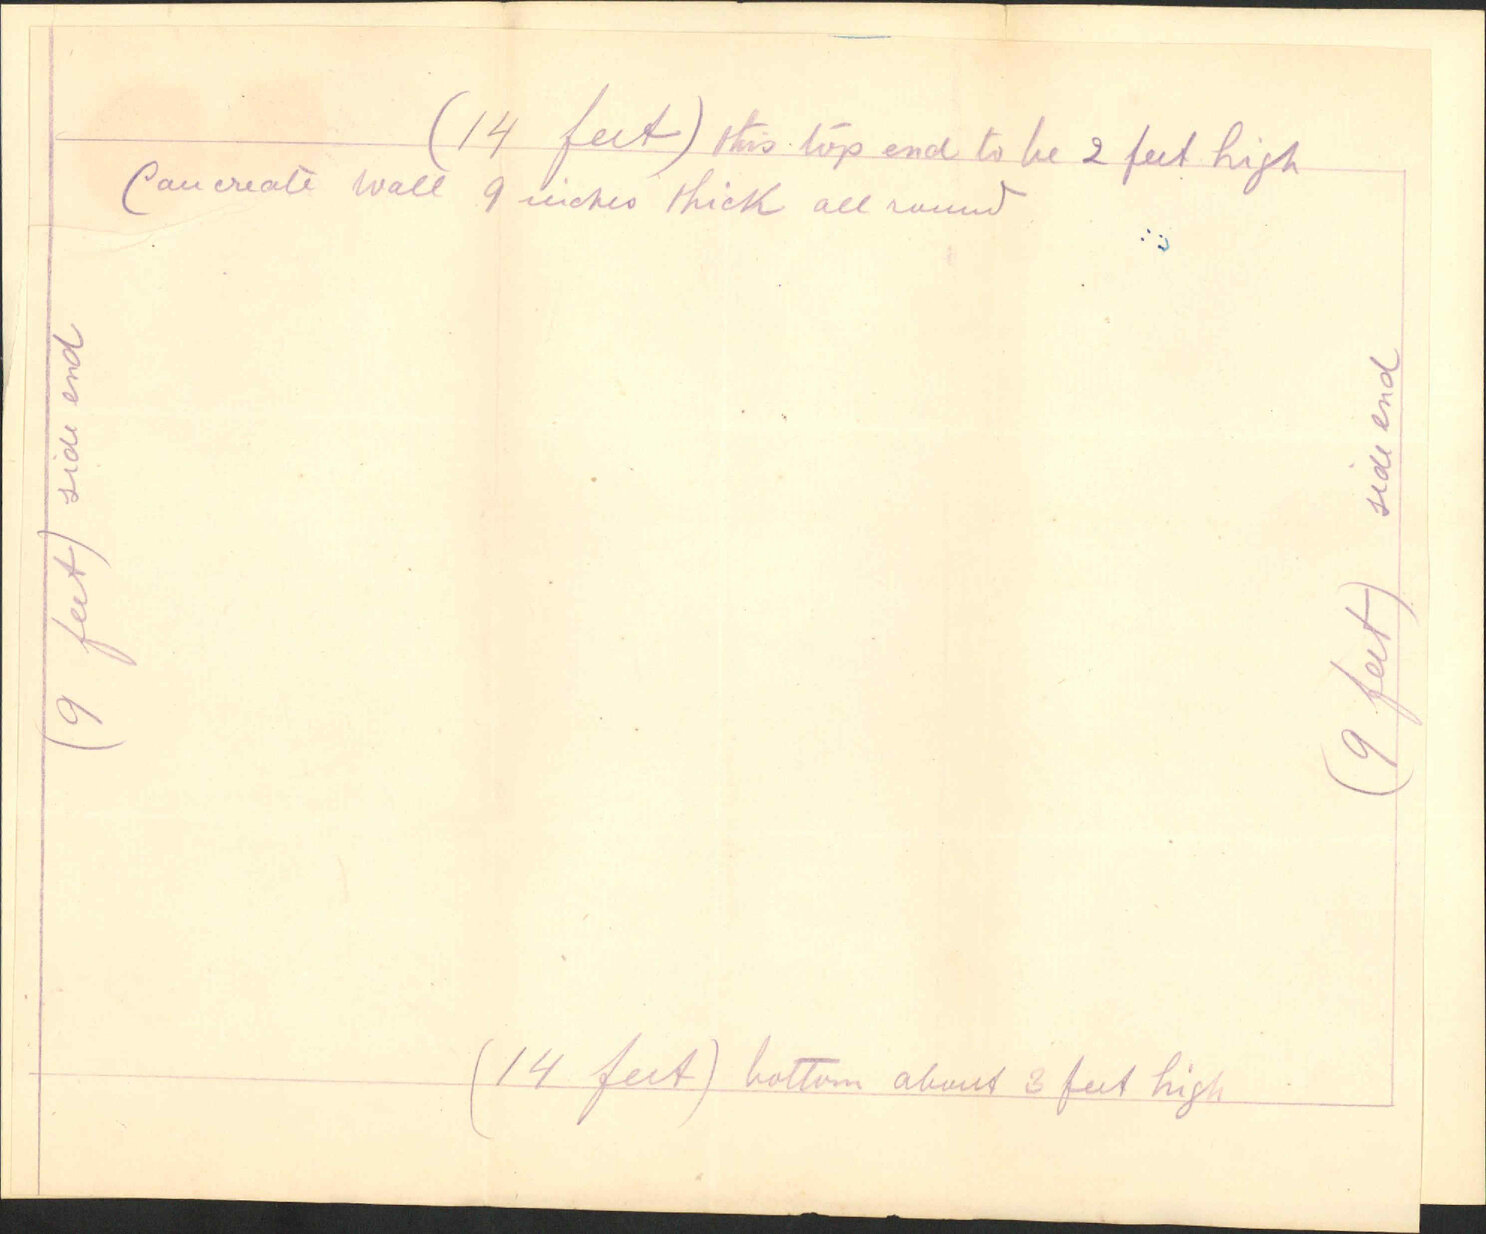 (14 feet) this top end to be 2 feet high
Concreate wall 9 inches thick all round
(9 feet) side end
(9 feet) side end
(14 feet) bottom about 3 feet high